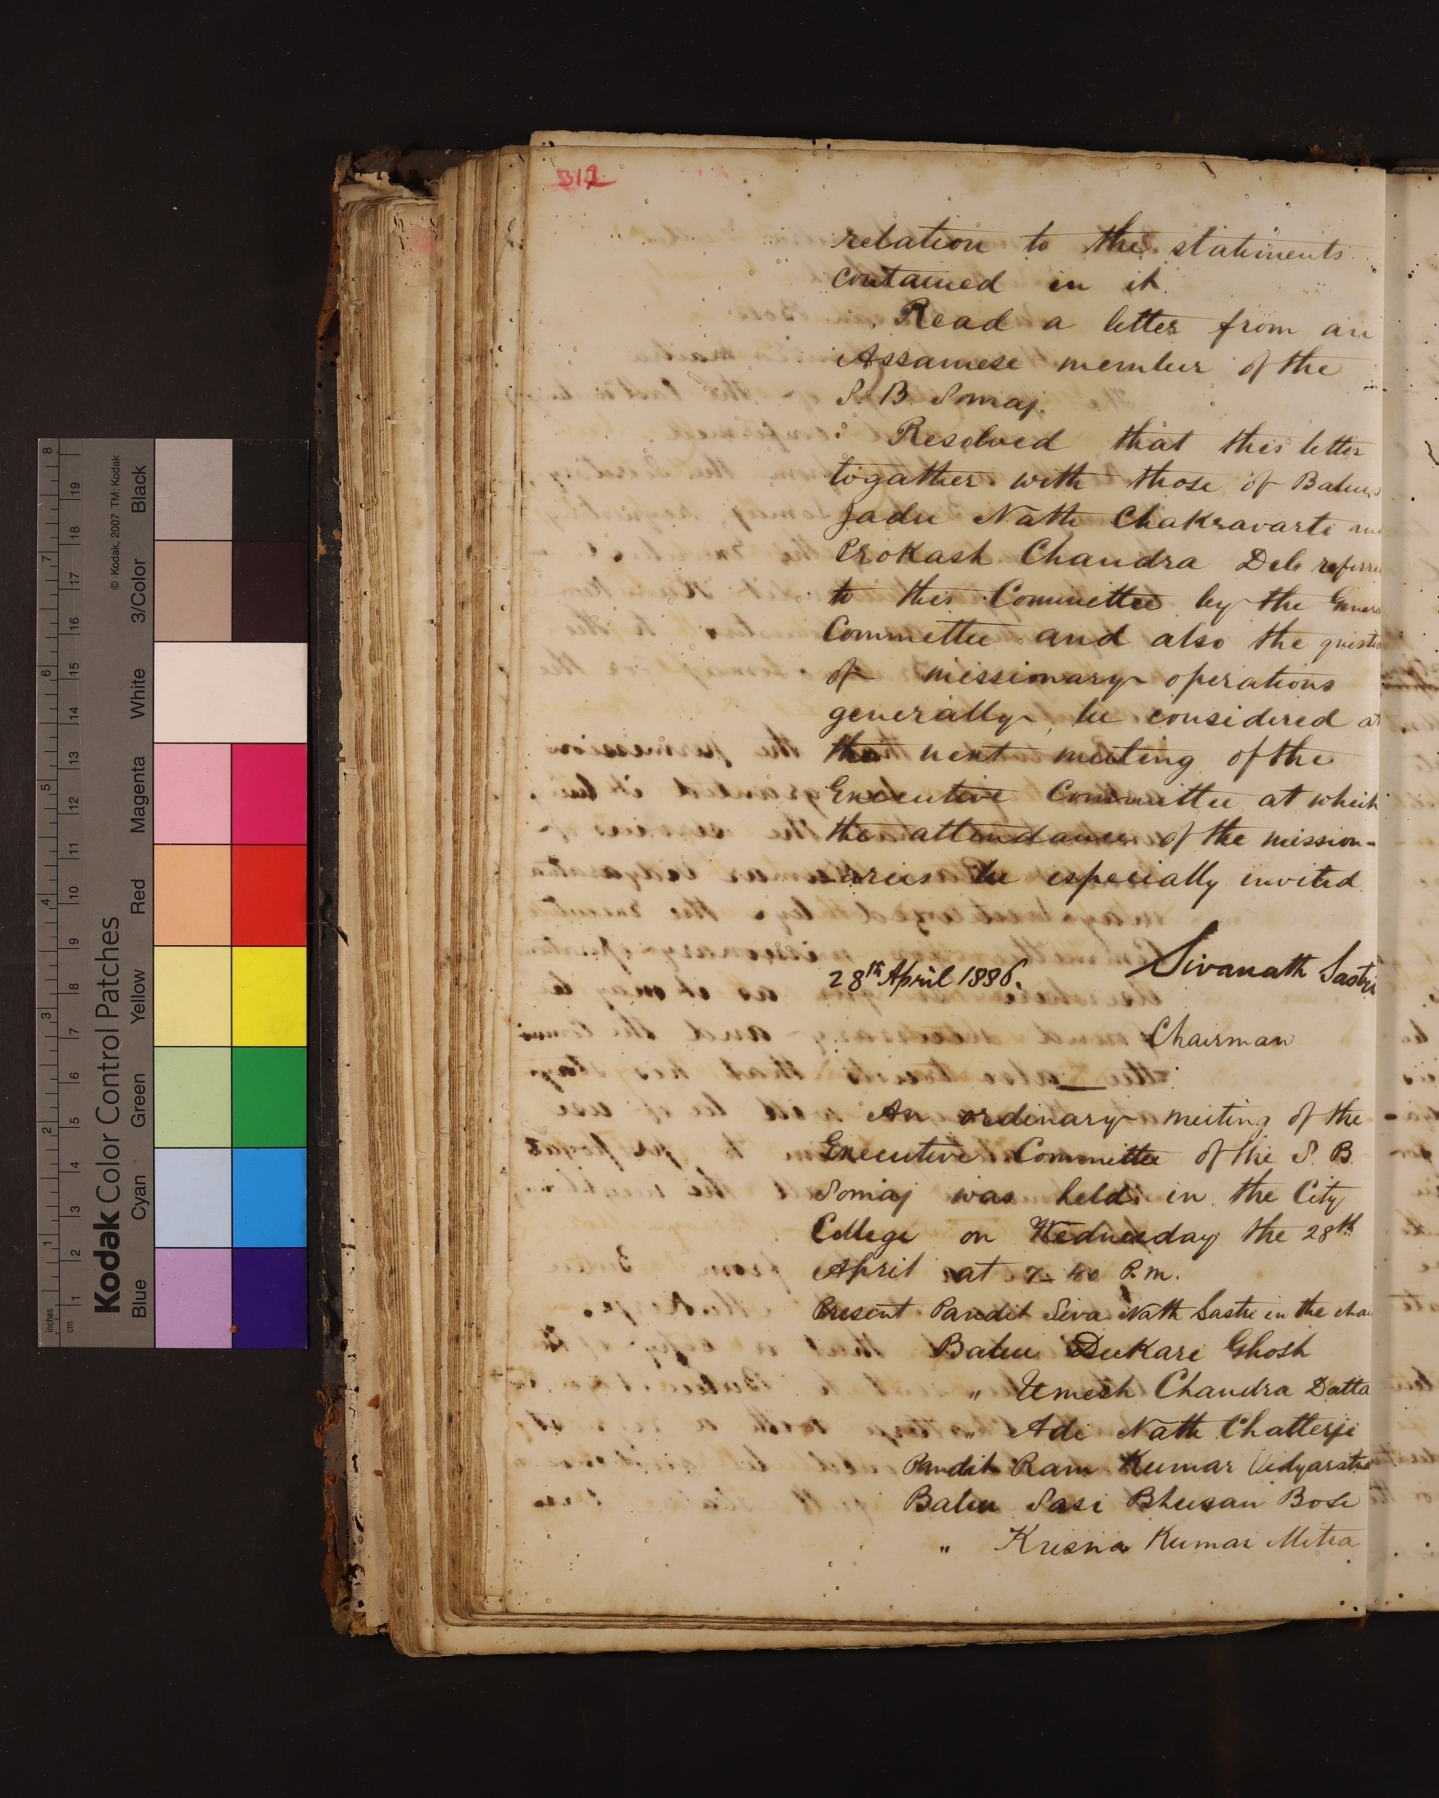 312
relation to the statements
contained in it.
Read a letter from an
Assamese member of the
S. B. Somaj.
Resolved that this letter
togather with those of Babus
Jadu Nath Chakravarti
Prokash Chandra Deb
to this Committee by the
Committee and also the
of missionary operations
generally, be considered at
the next meeting of the
Executive Committee at which
the attendance of the mission-
aries be especially invited.
28th April 1886.
Sivanath Sastri
Chairman
An ordinary meeting of the
Executive Committee of the S. B.
Somaj was held in the City
College on Wednesday the 28th
April at P.m.
Present Pandit Siva Nath Sastri in the
Babu Dukari Ghosh
" Umesh Chandra Datta
" Adi Nath Chatterji
Pandit Ram Kumar Vidyaratna
Babu Sasi Bhusan Bose
" Krisna Kumar Mitra
Kodak Color Control Patches
© Kodak, 2007 TM: Kodak
Blue Cyan Green Yellow Red Magenta White 3/Color Black
inches 1 2 3 4 5 6 7 8
cm 1 2 3 4 5 6 7 8 9 10 11 12 13 14 15 16 17 18 19